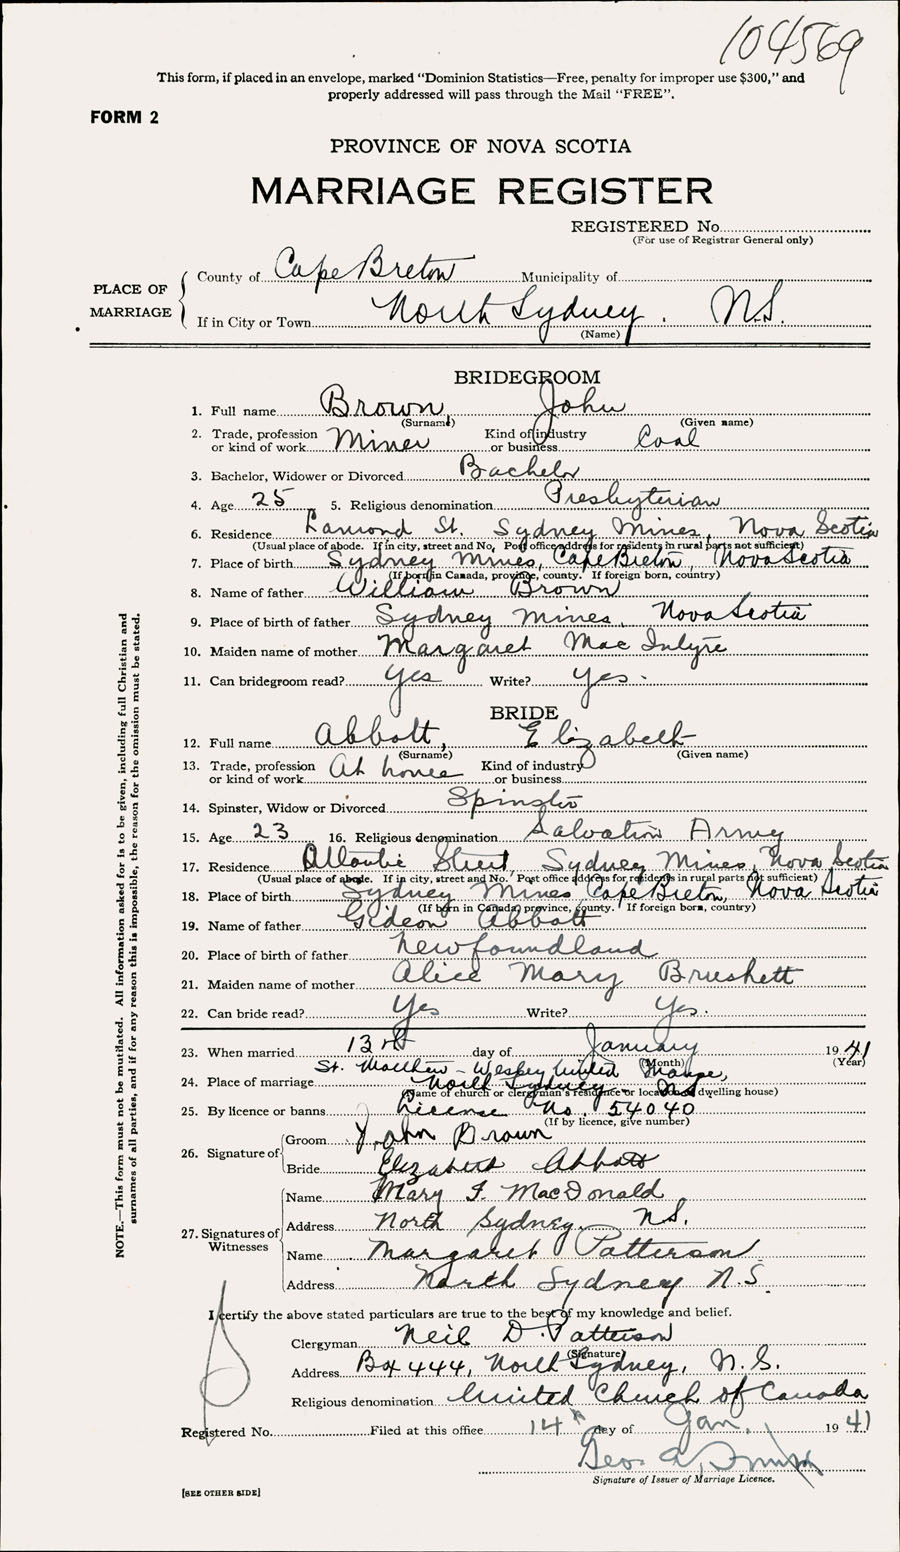 104569
This form, if placed in an envelope, marked "Dominion Statistics—Free, penalty for improper use $300," and
properly addressed will pass through the Mail "FREE".
FORM 2
PROVINCE OF NOVA SCOTIA
MARRIAGE REGISTER
REGISTERED No.
(For use of Registrar General only)
PLACE OF MARRIAGE
County of Cape Breton Municipality of
If in City or Town North Sydney. N.S.
(Name)
BRIDEGROOM
1. Full name Brown, John
(Surname) (Given name)
2. Trade, profession or kind of work Miner Kind of industry or business Coal
3. Bachelor, Widower or Divorced Bachelor
4. Age 25 5. Religious denomination Presbyterian
6. Residence Lamond St. Sydney Mines, Nova Scotia
(Usual place of abode. If in city, street and No. Post office address for residents in rural parts not sufficient)
7. Place of birth Sydney Mines, Cape Breton, Nova Scotia
(If born in Canada, province, county. If foreign born, country)
8. Name of father William Brown
9. Place of birth of father Sydney Mines, Nova Scotia
10. Maiden name of mother Margaret Mac Intyre
11. Can bridegroom read? Yes Write? Yes.
BRIDE
12. Full name Abbott, Elizabeth
(Surname) (Given name)
13. Trade, profession or kind of work At home Kind of industry or business
14. Spinster, Widow or Divorced Spinster
15. Age 23 16. Religious denomination Salvation Army
17. Residence Atlantic Street, Sydney Mines, Nova Scotia
(Usual place of abode. If in city, street and No. Post office address for residents in rural parts not sufficient)
18. Place of birth Sydney Mines Cape Breton, Nova Scotia
(If born in Canada, province, county. If foreign born, country)
19. Name of father Gideon Abbott
20. Place of birth of father Newfoundland
21. Maiden name of mother Alice Mary
22. Can bride read? Yes Write? Yes.
23. When married 13th day of January 1941
(Month) (Year)
St. Matthew - Wesley United Manse,
24. Place of marriage North Sydney - N.S.
(Name of church or clergyman's residence or location of dwelling house)
25. By licence or banns License No. 54040
(If by licence, give number)
26. Signature of
Groom John Brown
Bride Elizabeth Abbott
27. Signatures of Witnesses
Name Mary F. MacDonald
Address North Sydney. N.S.
Name Margaret Patterson
Address North Sydney N.S.
I certify the above stated particulars are true to the best of my knowledge and belief.
Clergyman Neil D. Patterson
(Signature)
Address Box 444, North Sydney, N.S.
Religious denomination United Church of Canada
Registered No. Filed at this office 14th day of Jan. 1941
Geo. A.
Signature of Issuer of Marriage Licence.
[SEE OTHER SIDE]
NOTE.—This form must not be mutilated. All information asked for is to be given, including full Christian and
surnames of all parties, and if for any reason this is impossible, the reason for the omission must be stated.